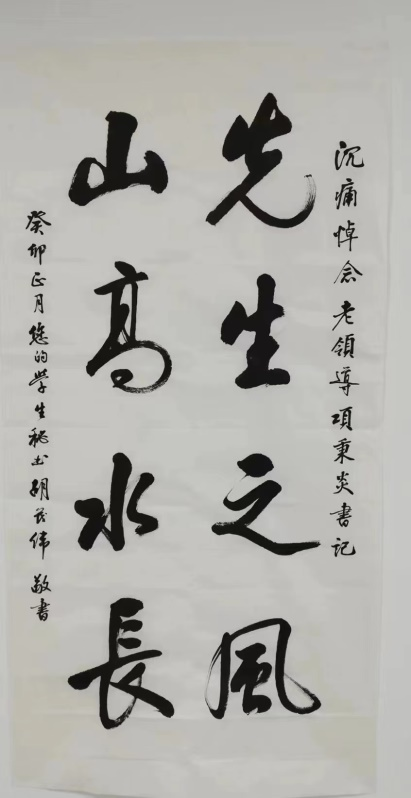 沉痛悼念老領導項秉炎書记
先生之風
山高水長
癸卯正月您的学生秘书胡茂偉敬書